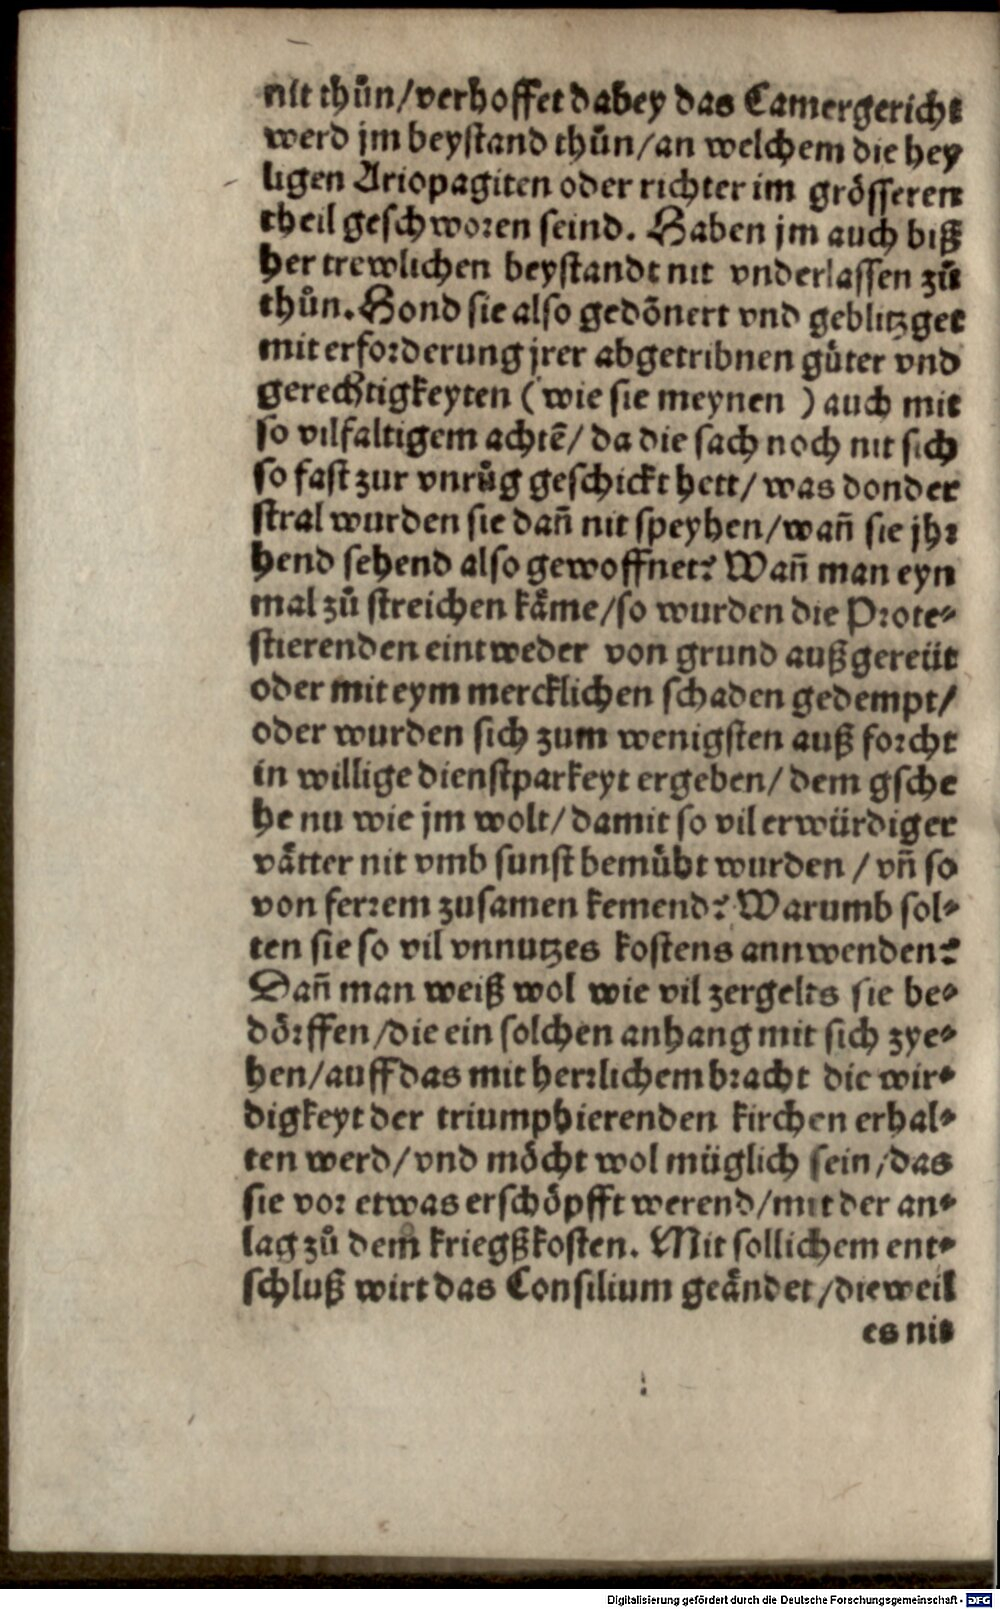 nit thůn/verhoffet dabey das Camergericht
werd jm beystand thůn/an welchem die hey
ligen Ariopagiten oder richter im grösseren
theil geschworen seind. Haben jm auch biß
her trewlichen beystandt nit vnderlassen zů
thůn. Hond sie also gedönert vnd geblitzget
mit erforderung jrer abgetribnen güter vnd
gerechtigkeyten (wie sie meynen ) auch mit
so vilfaltigem achtē/ da die sach noch nit sich
so fast zur vnrůg geschickt hett/ was donder
stral wurden sie dañ nit speyhen/wañ sie jhr
hend sehend also gewoffnet? Wañ man eyn
mal zů streichen käme/so wurden die Prote-
stierenden eintweder von grund außgereüt
oder mit eym mercklichen schaden gedempt/
oder wurden sich zum wenigsten auß forcht
in willige dienstparkeyt ergeben/ dem gsche
he nu wie jm wolt/ damit so vil erwürdiger
vätter nit vmb sunst bemüht wurden / vñ so
von ferrem zusamen kemend? Warumb sol-
ten sie so vil vnnutzes kostens annwenden?
Dañ man weiß wol wie vil zergelts sie be-
dörffen/die ein solchen anhang mit sich zye-
hen/auff das mit herrlichem bracht die wir-
digkeyt der triumphierenden kirchen erhal-
ten werd/vnd möcht wol müglich sein/das
sie vor etwas erschöpfft werend/mit der an-
lag zů dem kriegßkosten. Mit sollichem ent-
schluß wirt das Consilium geändet/dieweil
es nit
Digitalisierung gefördert durch die Deutsche Forschungsgemeinschaft - DFG